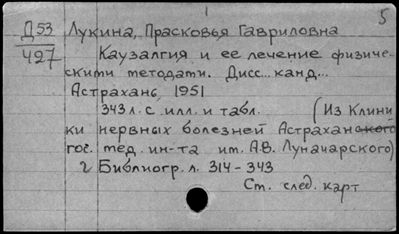 5
Д53 Лукина, Прасковья Гавриловна
427 Каузалгия и ее лечение физиче-
скими методами. Дисс... канд...
Астрахань, 1951
343 л. с илл. и табл. (Из Клини
ки нервных болезней Астраханского
гос. мед. ин-та им. А.В. Луначарского)
2 Библиогр. л. 314-343
Ст. след. карт